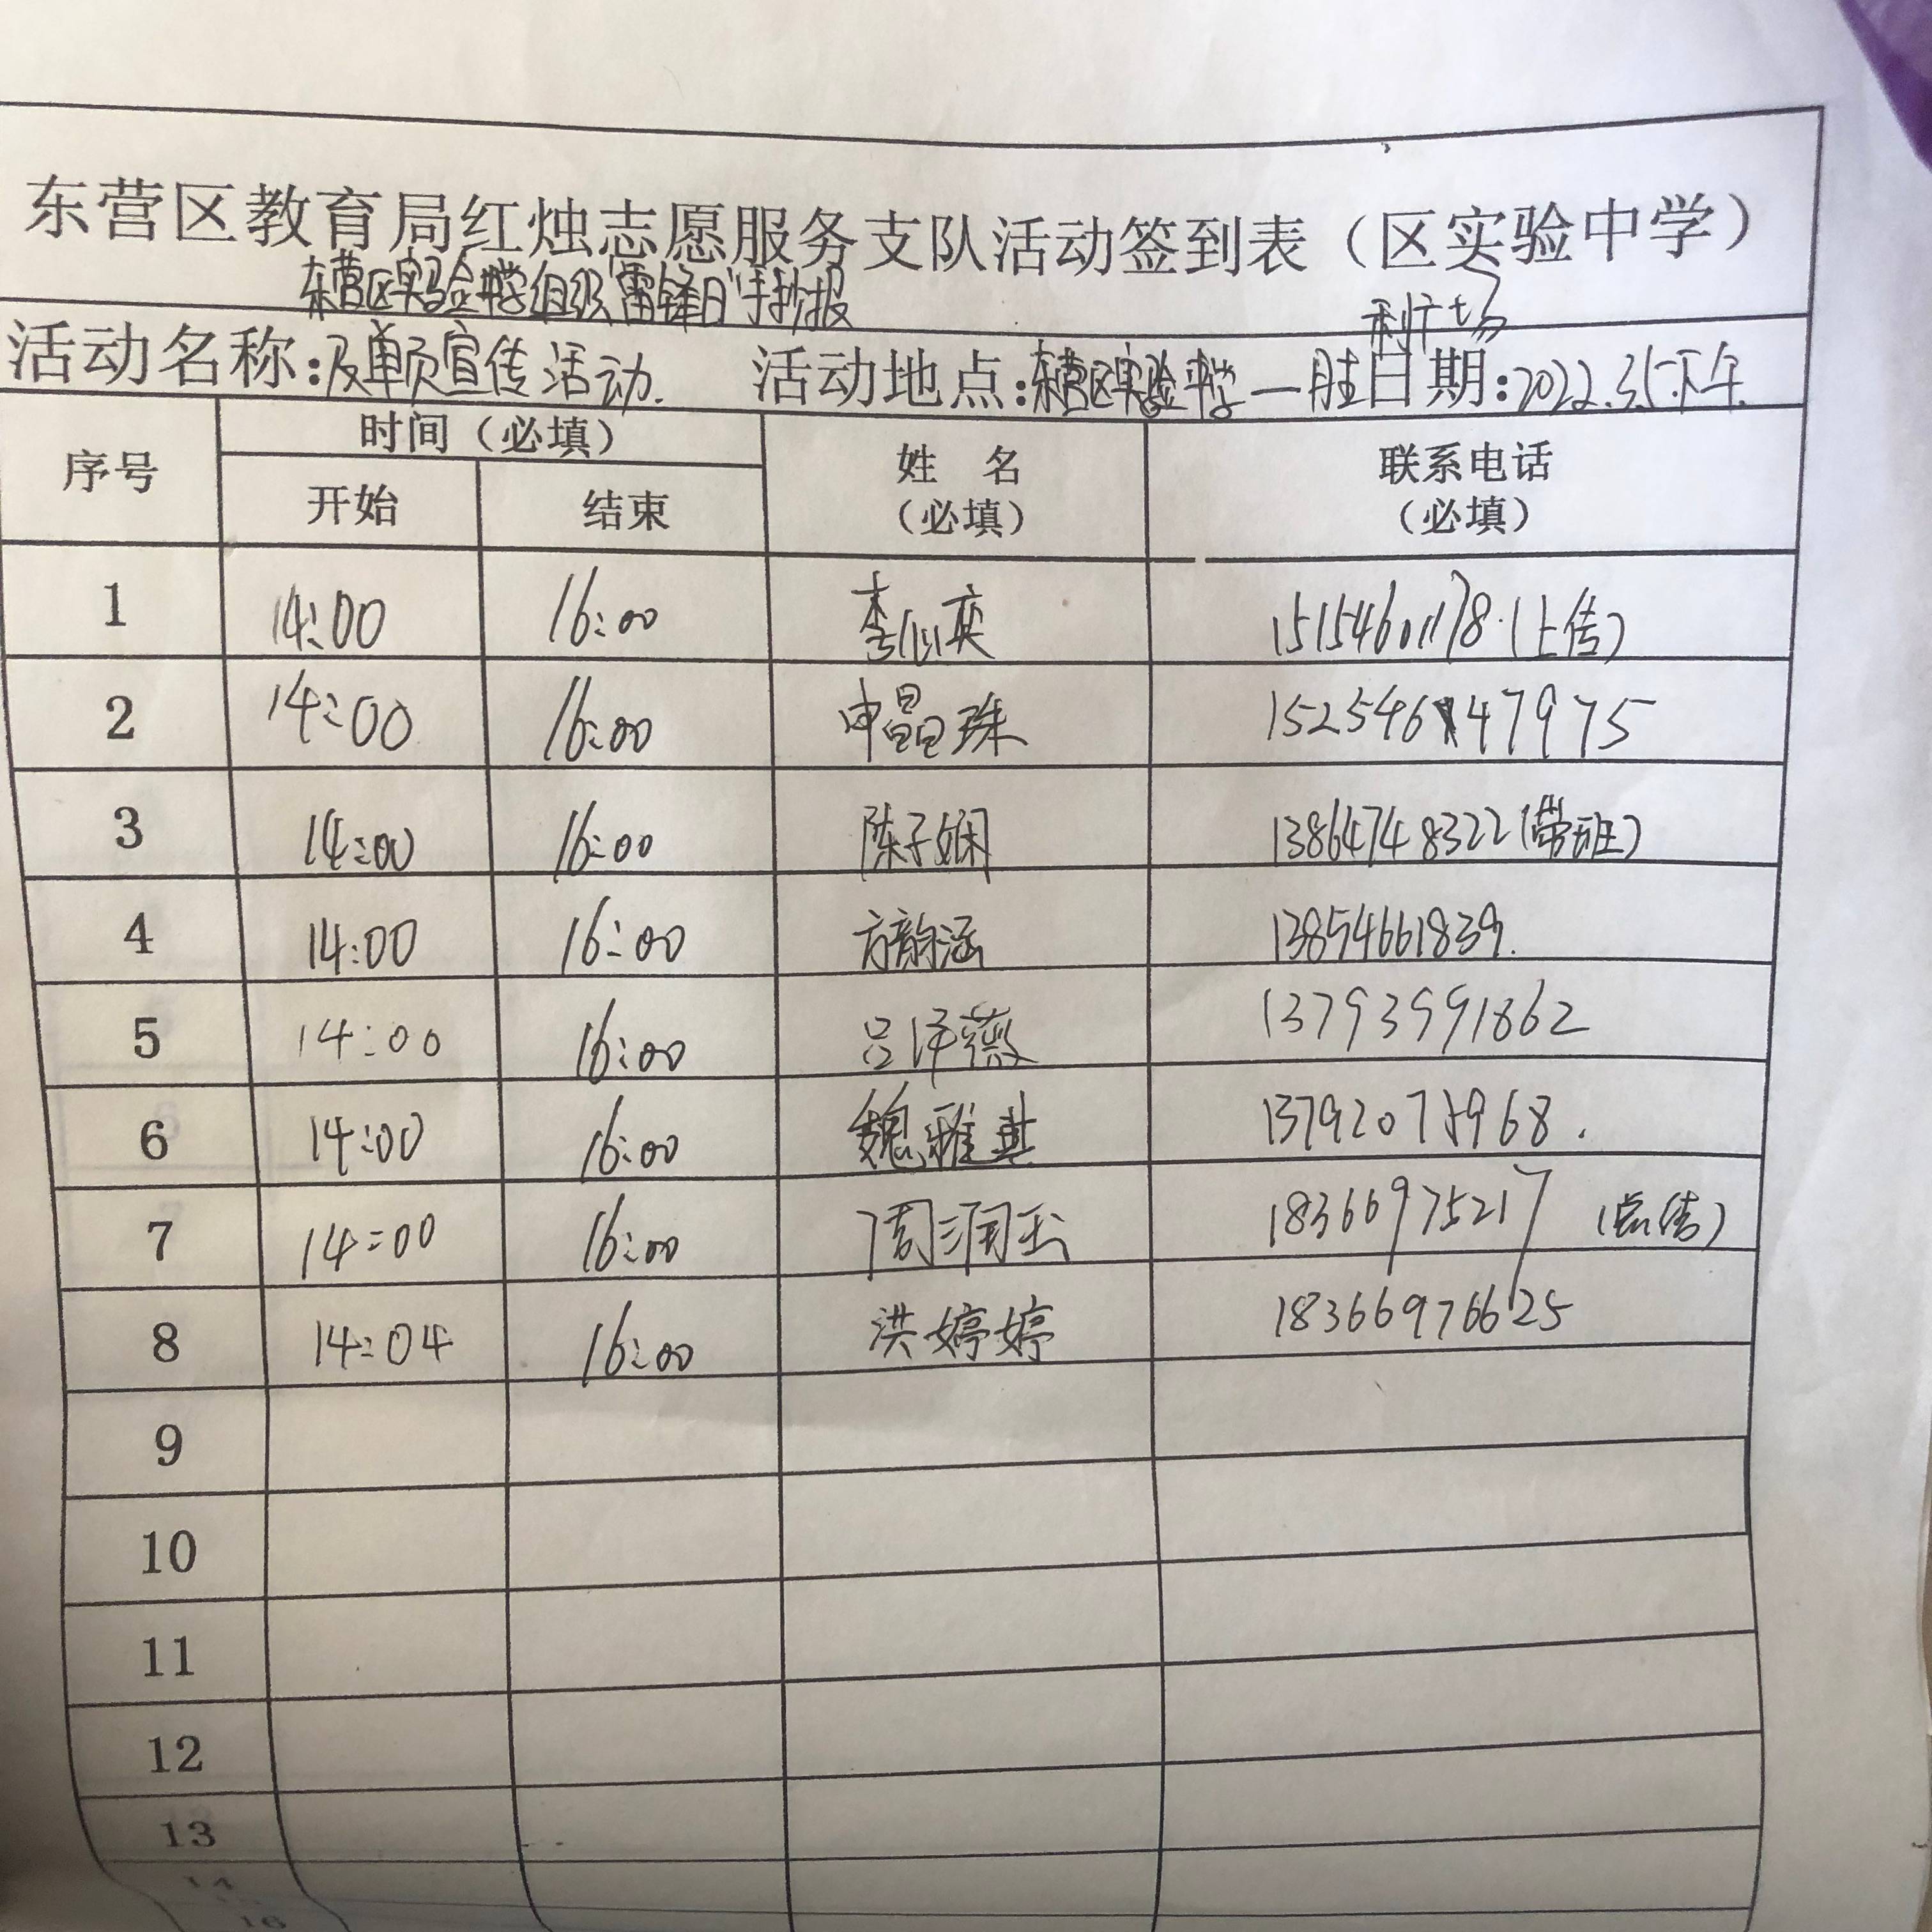 东营区教育局红烛志愿服务支队活动签到表（区实验中学）
东营区实验中学组织"雷锋日"手抄报
利广场
活动名称:及单页宣传活动. 活动地点:东营区实验中学—胜日期:2022.3.5下午
序号 时间（必填） 姓 名（必填） 联系电话（必填）
开始 结束
1 14:00 16:00 李心奕 15154601178.(上传)
2 14:00 16:00 申晶珠 15254647975
3 14:00 16:00 陈子娴 13864748322(带班)
4 14:00 16:00 方韵涵 13854661839.
5 14:00 16:00 吕泽薇 13793991862
6 14:00 16:00 魏雅其 13792075968.
7 14:00 16:00 周润玉 18366975217
8 14:04 16:00 洪婷婷 18366976625
9
10
11
12
13
14
16